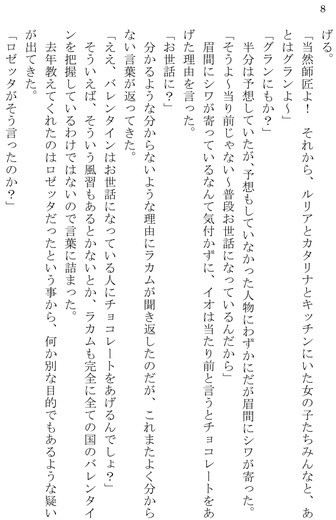 8
げる。
「当然師匠よ!　それから、ルリアとカタリナとキッチンにいた女の子たちみんなと、あ
とはグランよ～」
「グランにもか?」
　半分は予想していたが、予想もしていなかった人物にわずかにだが眉間にシワが寄った。
「そうよ～当り前じゃない～普段お世話になっているんだから」
　眉間にシワが寄っているなんて気付かずに、イオは当たり前と言うとチョコレートをあ
げた理由を言った。
「お世話に?」
　分かるような分からないような理由にラカムが聞き返したのだが、これまたよく分から
ない言葉が返ってきた。
「ええ、バレンタインはお世話になっている人にチョコレートをあげるんでしょ?」
　そういえば、そういう風習もあるとかないとか、ラカムも完全に全ての国のバレンタイ
ンを把握しているわけではないので言葉に詰まった。
　去年教えてくれたのはロゼッタだったという事から、何か別な目的でもあるような疑い
が出てきた。
「ロゼッタがそう言ったのか?」